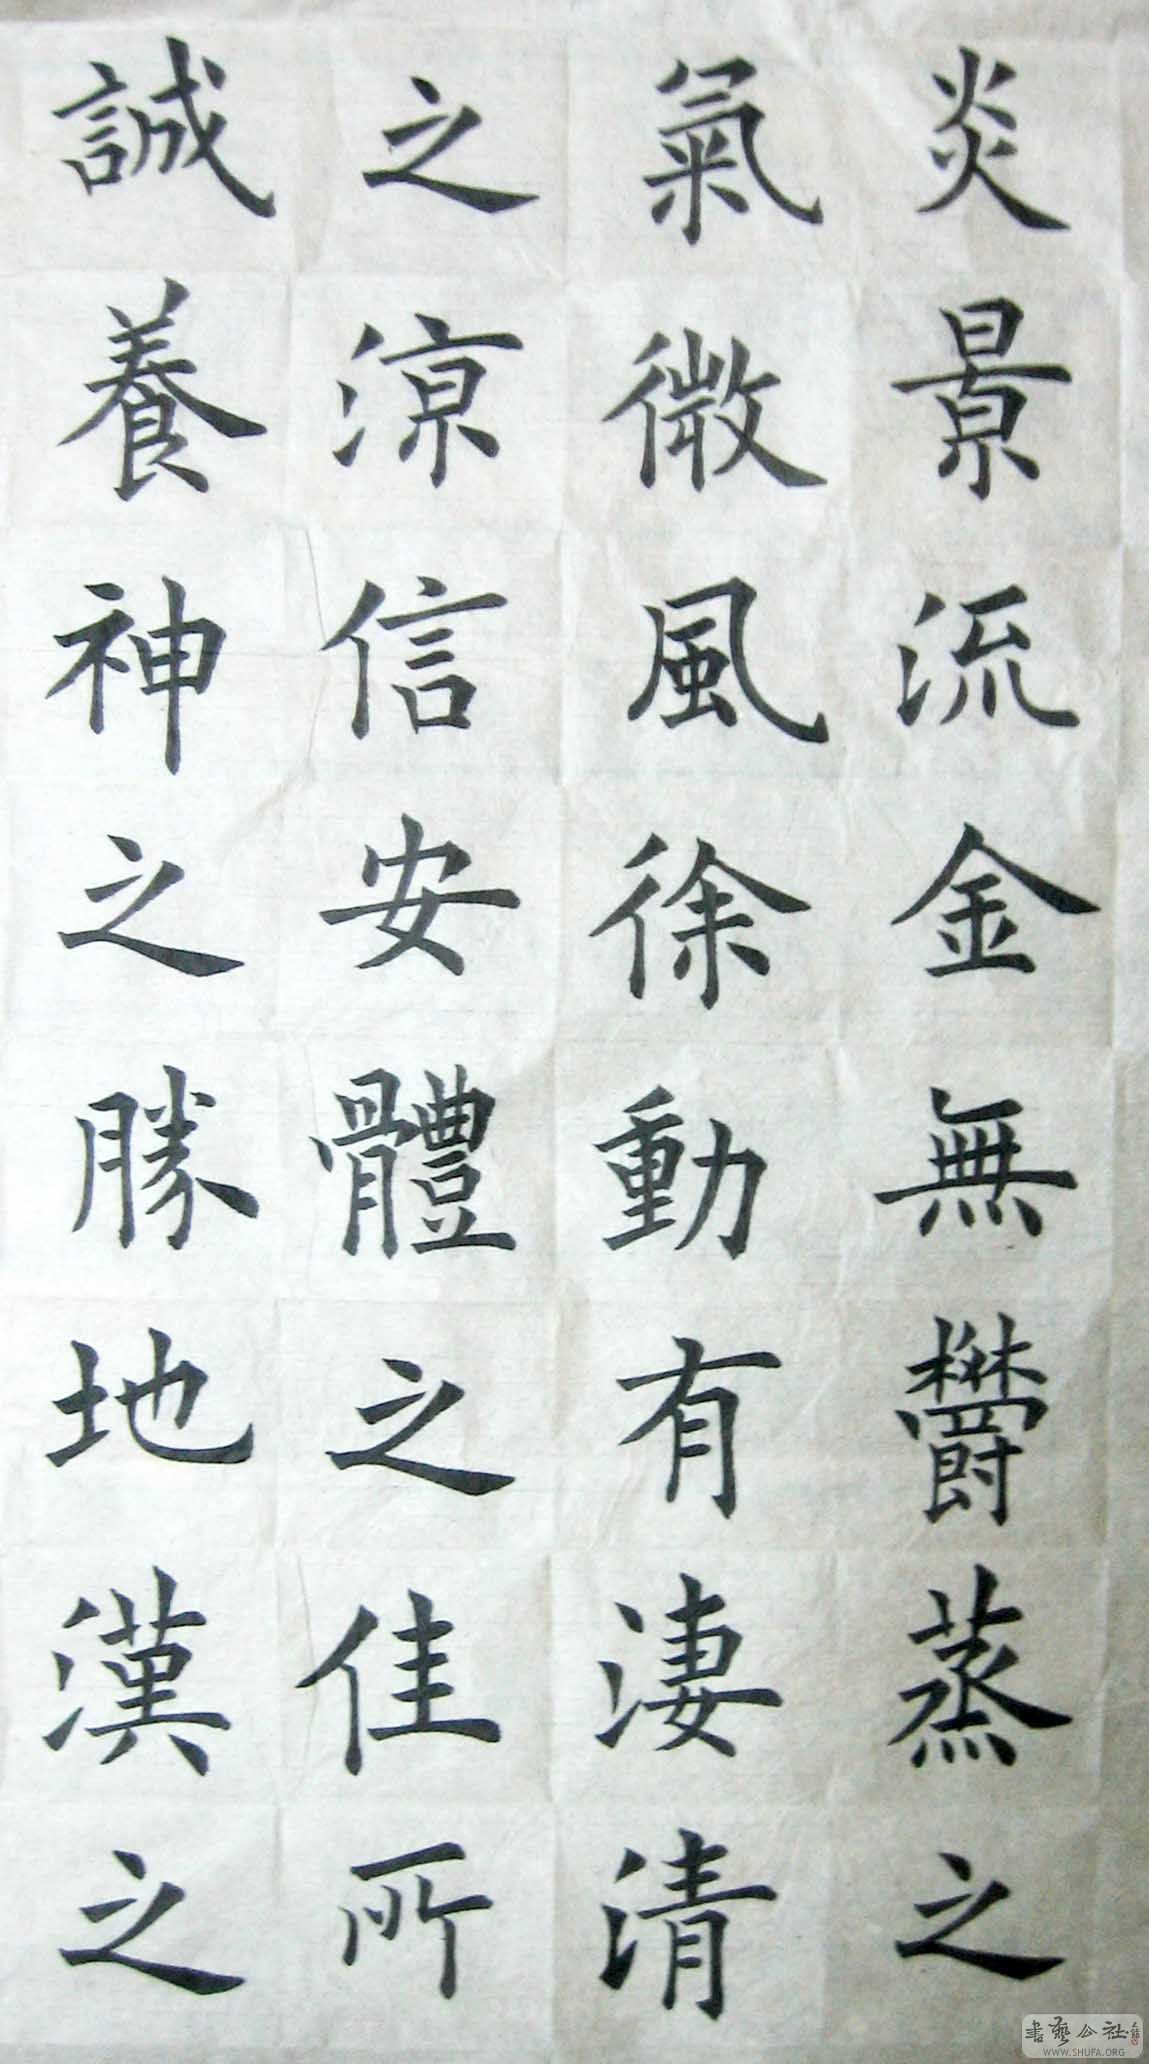 炎景流金無鬱蒸之
氣微風徐動有淒清
之涼信安體之佳所
誠養神之勝地漢之
書藝公社
WWW.SHUFA.ORG